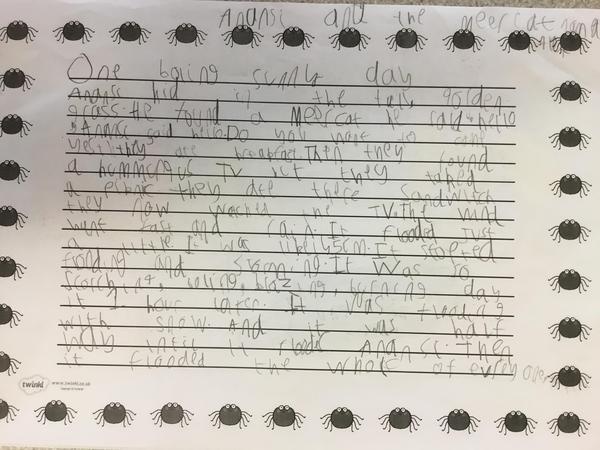 Anansi and the Meercat
One boing sunny day
Ananse hid in the tall golden
grass. He found a Meercat he said hello
Ananse said hello. Do you want to
yes!! they are breakfast. Then they found
a humungus TV
a picnic they ate there sandwich
they now watched the TV. The wind
went fast and rain. It flooded just
a little. It was It stopted
flonding and storming. It was so
scorching, boling, blazing, burning day
it 1 hour later. It was flonding
with snow. And it was half
way until it Ananse. Then
it flonded the whole of every
twinkl www.twinkl.co.uk